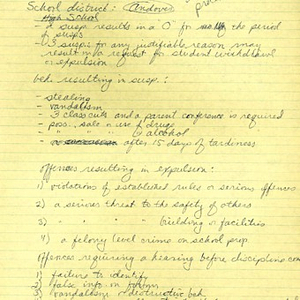 School district: Andover
High School
- a susp. results in a "0" for the period
of susp.
- 3 susp. for any justifiable reason may
result in a request for student withdrawal
or expulsion.
beh. resulting in susp.:
- stealing
- vandalism
- 3 class cuts and a parent conference is required
- poss., sale or use of drugs
- " " " " " alcohol
- after 15 days of tardiness
offences resulting in expulsion:
1) violations of established rules or serious offences
2) a serious threat to the safety of others
3) " " " " building or facilities
4) a felony level crime on school prop.
offences requiring a hearing before discipline com
1) failure to identify
2) false info on forms
3) vandalism or destructive beh.